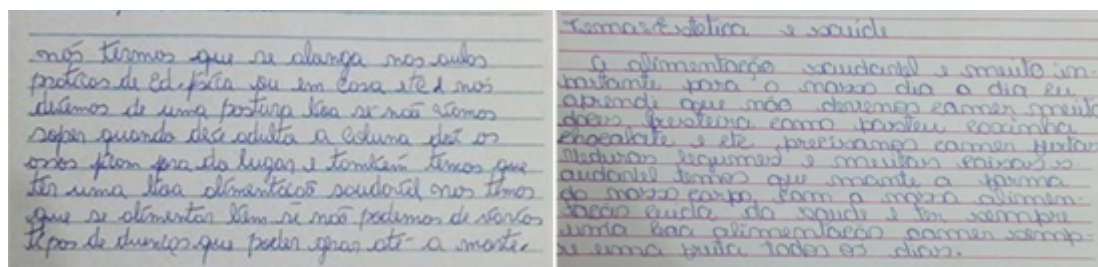 nós termos que se alonga nos aulas
praticas de Ed. física ou em casa etc e nós
devemos de uma postura boa si não vamos
sofrer quando dece adulta a coluna doi os
ossos ficam fora do lugar e também temos que
ter uma boa alimentacão saudavel nos temos
que se alimentar bem si não podemos de varios
tipos de duenças que poder geras até a morte.
Temas Estetica e saúde
A alimentacão saudavel e muito im-
portante para o nosso dia a dia eu
aprendi que não devemos comer muito
doces besteira como pasteu coxinha
chocolate e etc precisamos comer frutas
verduras legumes e muitas coisas s
audavel temos que mante a forma
do nosso corpo com a nossa alimen-
tacão cuida da saude e ter sempre
uma boa alimentacão comer semp-
re uma fruta todos os dias.